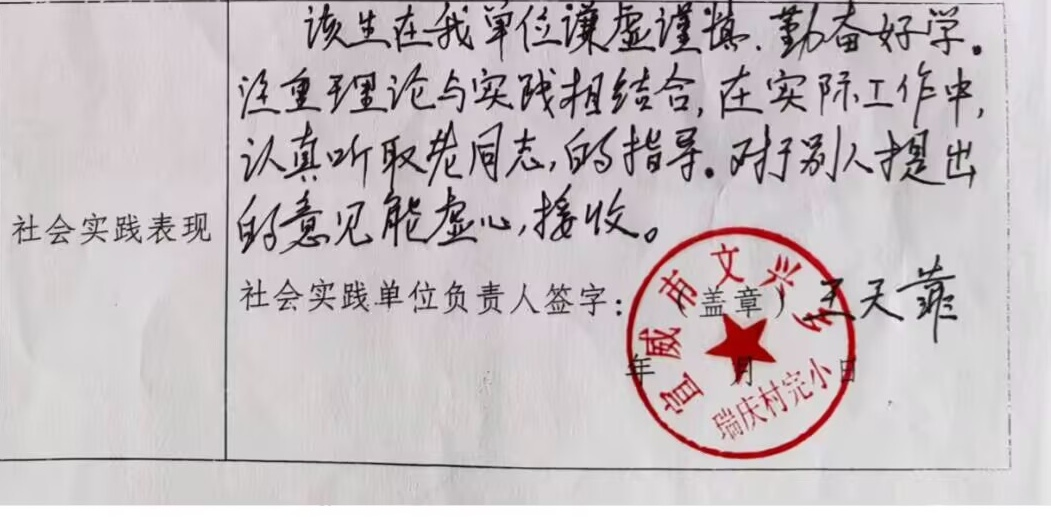 该生在我单位谦虚谨慎、勤奋好学。
注重理论与实践相结合,在实际工作中,
认真听取老同志,的指导。对于别人提出
的意见能虚心,接收。
社会实践表现
社会实践单位负责人签字: (盖章) 王天靠
年 月 日
宣威市文兴乡
瑞庆村完小